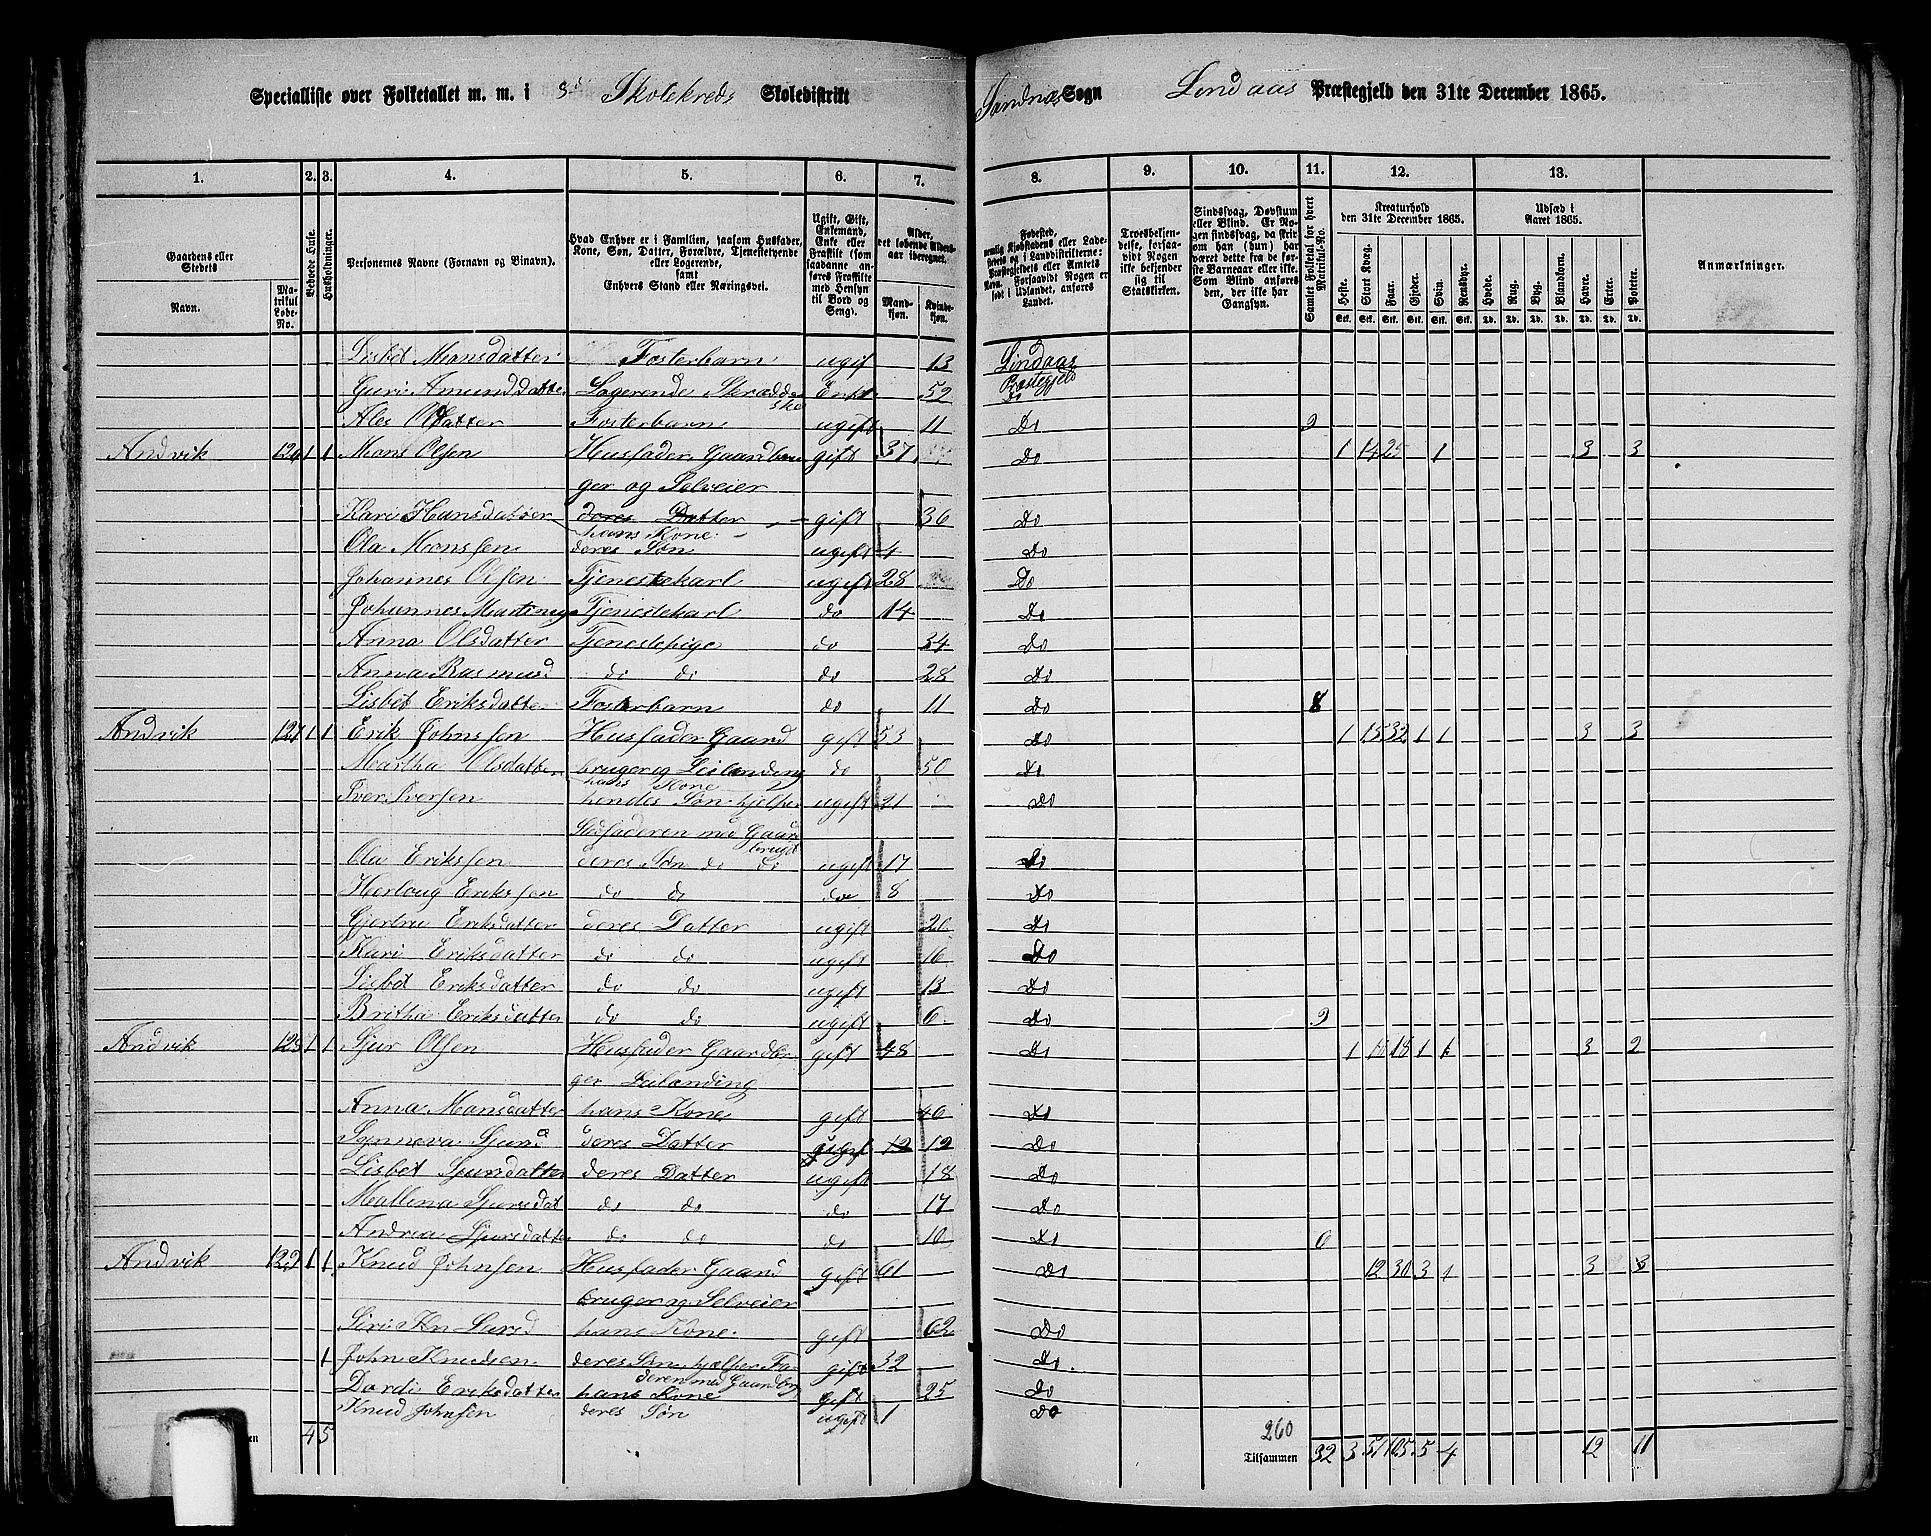 Specialliste over Folketallet m. m. i 3d Skolekreds Skoledistrikt Sandnæs Sogn Lindaas Præstegjeld den 31te December 1865.
1. 2. 3. 4. 5. 6. 7. 8. 9. 10. 11. 12. 13.
Gaardens eller Stedets
Navn.
Matrikul Løbe-No.
Beboede Huse.
Husholdninger.
Personernes Navne (Fornavn og Binavn).
Hvad Enhver er i Familien, saasom Husfader, Kone, Søn, Datter, Forældre, Tjenestetyende eller Logerende, samt Enhvers Stand eller Næringsvei.
Ugift, Gift, Enkemand, Enke eller Fraskilt (som saadanne anføres Fraskilte med Hensyn til Bord og Seng).
Alder, det løbende Alders-aar iberegnet.
Mandkjøn. Kvindekjøn.
Fødested, nemlig Kjøbstadens eller Ladestedets, Præstegjeldets eller Amtets Navn.
Troesbekjendelse, forsaavidt Nogen ikke bekjender sig til Statskirken.
Sindssvag, Døvstum eller Blind.
Samlet Folketal for hvert Matrikul-No.
Kreaturhold den 31te December 1865.
Heste. Stort Kvæg. Faar. Gjeder. Svin. Rensdyr.
Udsæd i Aaret 1865.
Hvede. Rug. Byg. Blandkorn. Havre. Erter. Poteter.
Anmærkninger.
Lisbet Monsdatter Fosterbarn ugif 13 Lindaas Præstegjeld
Guri Amunddatte Logerende Skrædderske Enke 52 do
Ales Olsdatter Fosterbarn ugift 11 Do 9
Andvik 126 1 1 Mons Olsen Husfader Gaardbru gift 37 Do 1 14 25 1 3 3
ger og Selveier
Kari Hansdatter deres Datter gift 36 Do
hans Kone
Ola Monssen deres Søn ugift 4 Do
Johannes Olsen Tjenestekarl ugift 28 Do
Johannes Mortens Tjenestekarl do 14 Do
Anna Olsdatter Tjenestepige do 34 Do
Anna Rasmusd do do do 28 Do
Lisbet Eriksdatter Fosterbarn do 11 Do 8
Andvik 127 1 1 Erik Johnssen Husfader Gaard gift 53 Do 1 15 32 1 1 3 3
Martha Olsdatter bruger og Leilending do 50 Do
hans Kone
Iver Iversen hendes Søn hjelper ugift 21 Do
Stedfaderen med Gaard
bruget
Ola Erikssen deres Søn do do ugift 17 Do
Herloug Erikssen do do do 8 Do
Gjertru Eriksdatter deres Datter ugift 20 Do
Kari Eriksdatter do do ugift 16 Do
Lisbet Eriksdatter do do ugift 13 Do
Britha Eriksdatter do do ugift 6 Do 9
Andvik 128 1 1 Sjur Olsen Husfader Gaardbru gift 48 Do 1 10 18 1 1 3 2
ger Leilending
Anna Monsdatter hans Kone gift 40 Do
Synneva Sjursd deres Datter ugift 12 12 Do
Lisbet Sjursdatter deres Datter ugift 18 Do
Mallena Sjursdat do do do 17 Do
Andrea Sjursdatter do do do 10 Do 6
Andvik 129 1 1 Knud Johnsen Husfader Gaard gift 61 Do 12 30 3 1 3 3
bruger og Selveier
Siri Kn Larsd hans Kone gift 62 Do
1 John Knudsen deres Søn hjelper Fa gift 32 Do
deren med Gaardbrug
Dordi Eriksdatter hans Kone gift 25 Do
Knud Johnsen deres Søn ugift 1 Do
4 5
260
Tilsammen 32 3 51 105 5 4 12 11